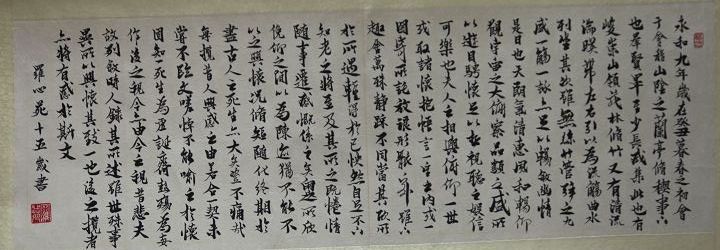 永和九年歲在癸丑暮春之初會
于會稽山陰之蘭亭脩稧事
也羣賢畢至少長咸集此地有
峻崇山領茂林脩竹又有清流激
湍暎帶左右引以為流觴曲水
列坐其次雖無絲竹管弦之
盛一觴一詠亦足以暢敘幽情
是日也天朗氣清惠風和暢仰
觀宇宙之大俯察品類之盛所
以遊目騁懷足以極視聽之娛信
可樂也夫人之相與俯仰一世
或取諸懷抱悟言一室之內或
因寄所託放浪形骸之外雖
趣舍萬殊靜躁不同當其欣
於所遇暫得於己快然自足不
知老之將至及其所之既惓情
隨事遷感慨係之矣向之所欣
俛仰之間以為陳迹猶不能不
以之興懷況脩短隨化終期於
盡古人云死生亦大矣豈不痛哉
每攬昔人興感之由若合一契未
嘗不臨文嗟悼不能喻之於懷
固知一死生為虛誕齊彭殤為妄
作後之視今亦由今之視昔悲夫
故列敘時人錄其所述雖世殊事
異所以興懷其致一也後之攬者
亦將有感於斯文
羅心苑十五歲書